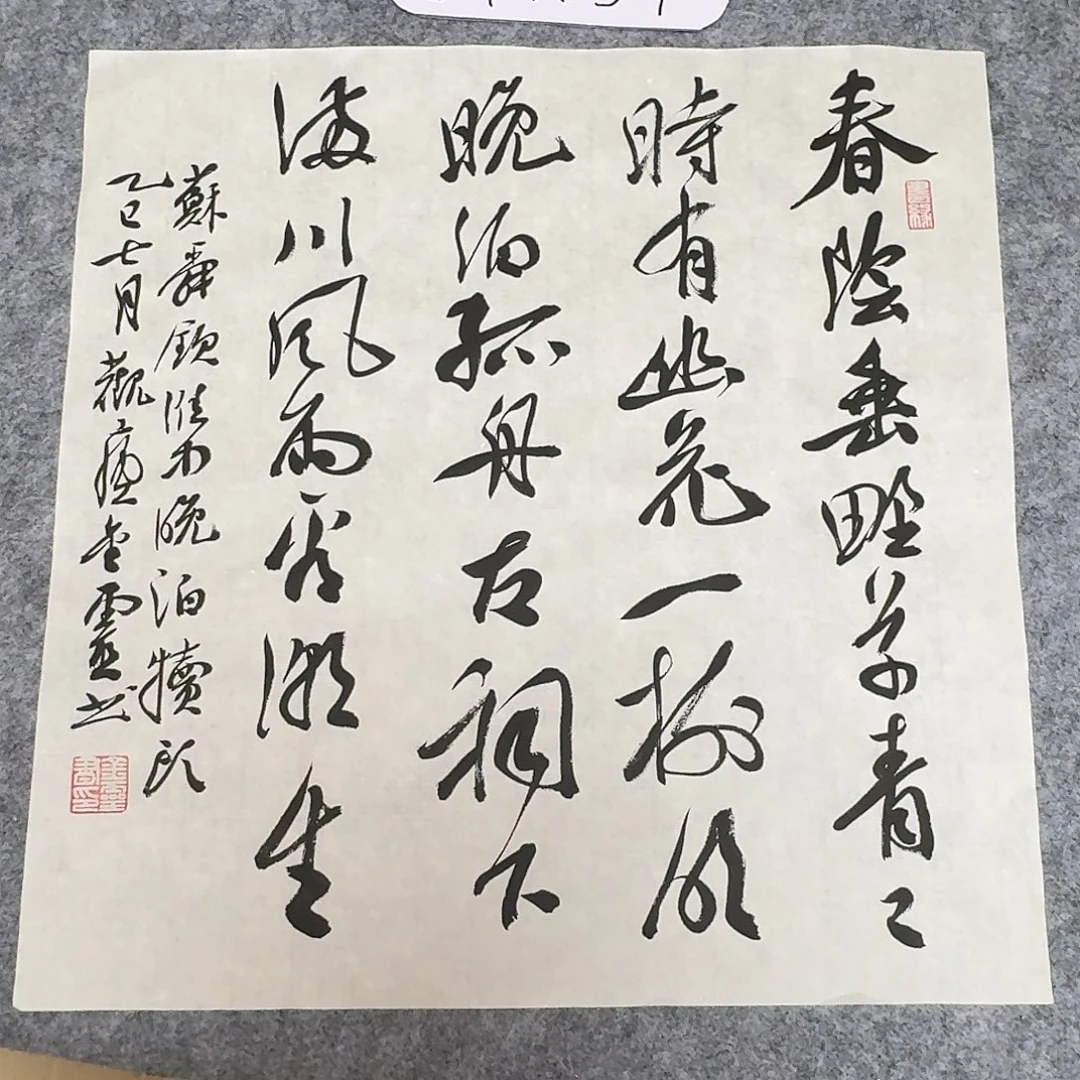 春陰垂野草青々
時有幽花一樹明
晚泊孤舟古祠下
滿川風雨看潮生
蘇舜欽淮中晚泊犢頭
乙巳七月觀靈书